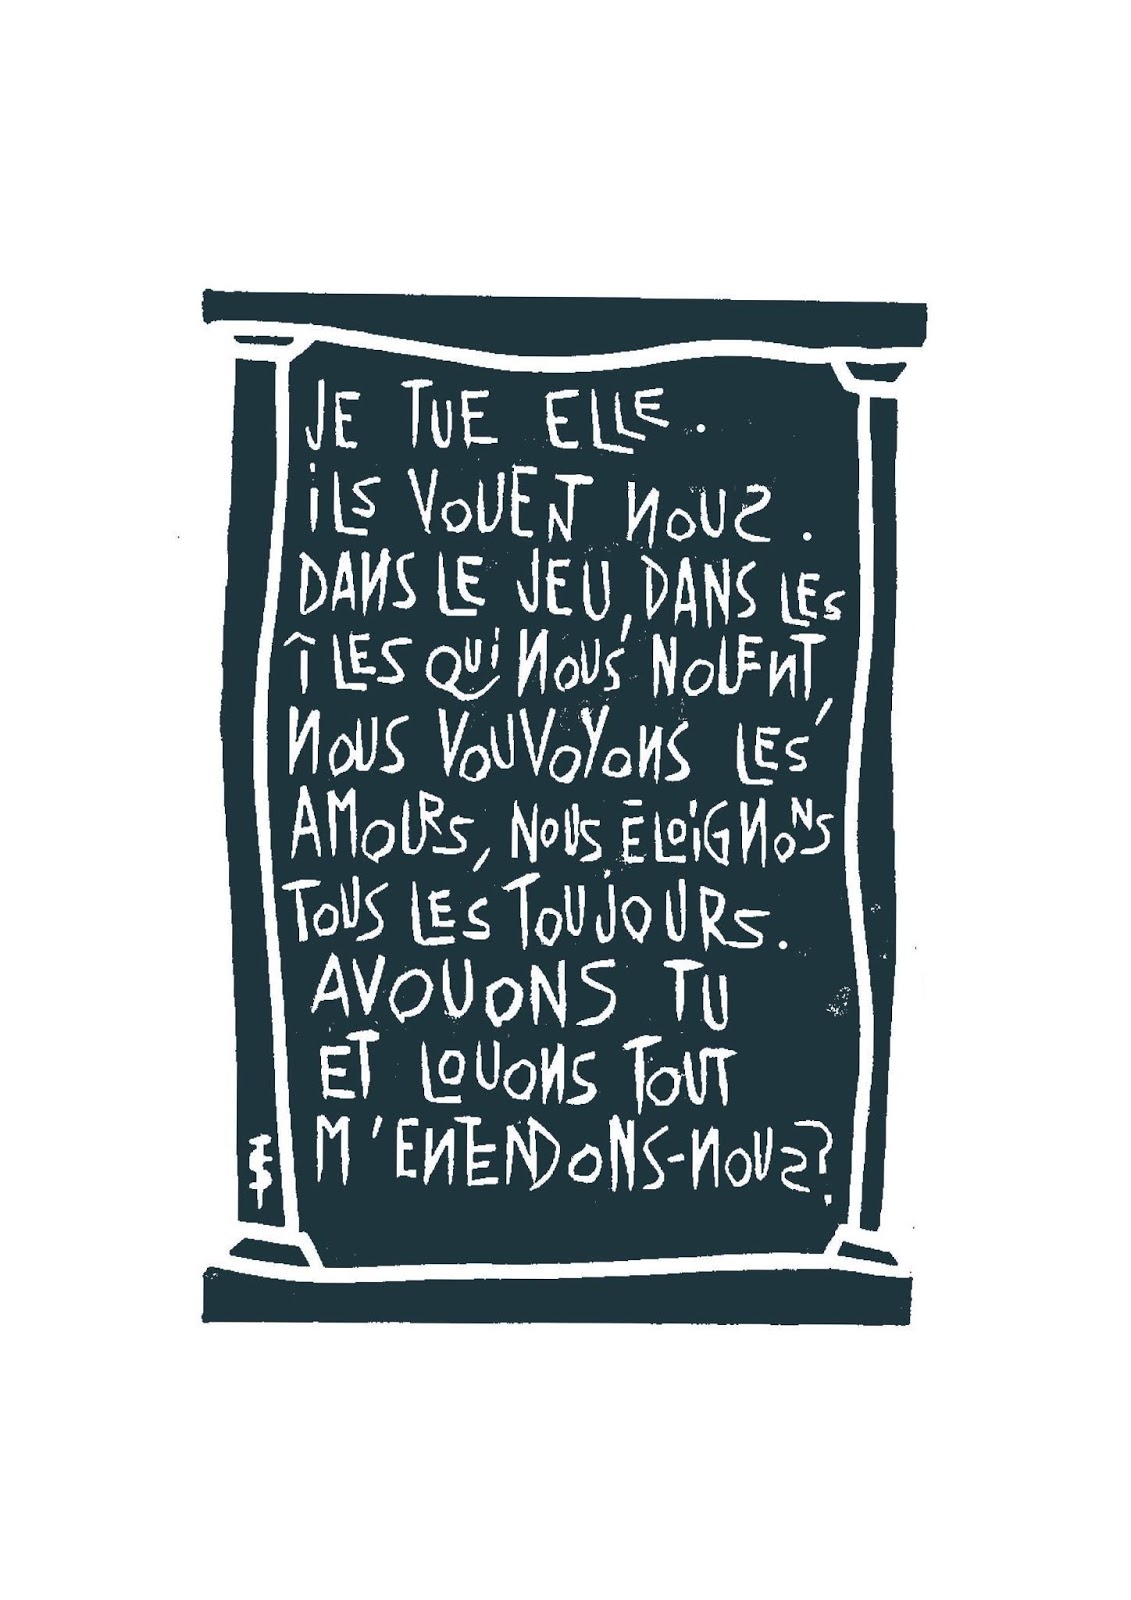 JE TUE ELLE.
iLS VOUENT NOUS.
DANS LE JEU, DANS LES
ÎLES QUi NOUS NOUENT,
NOUS VOUVOYONS LES
AMOURS, NOUS ÉLOiGNONS
TOUS LES TOUJOURS.
AVOUONS TU
ET LOUONS TOUT
M'ENTENDONS-NOUS?